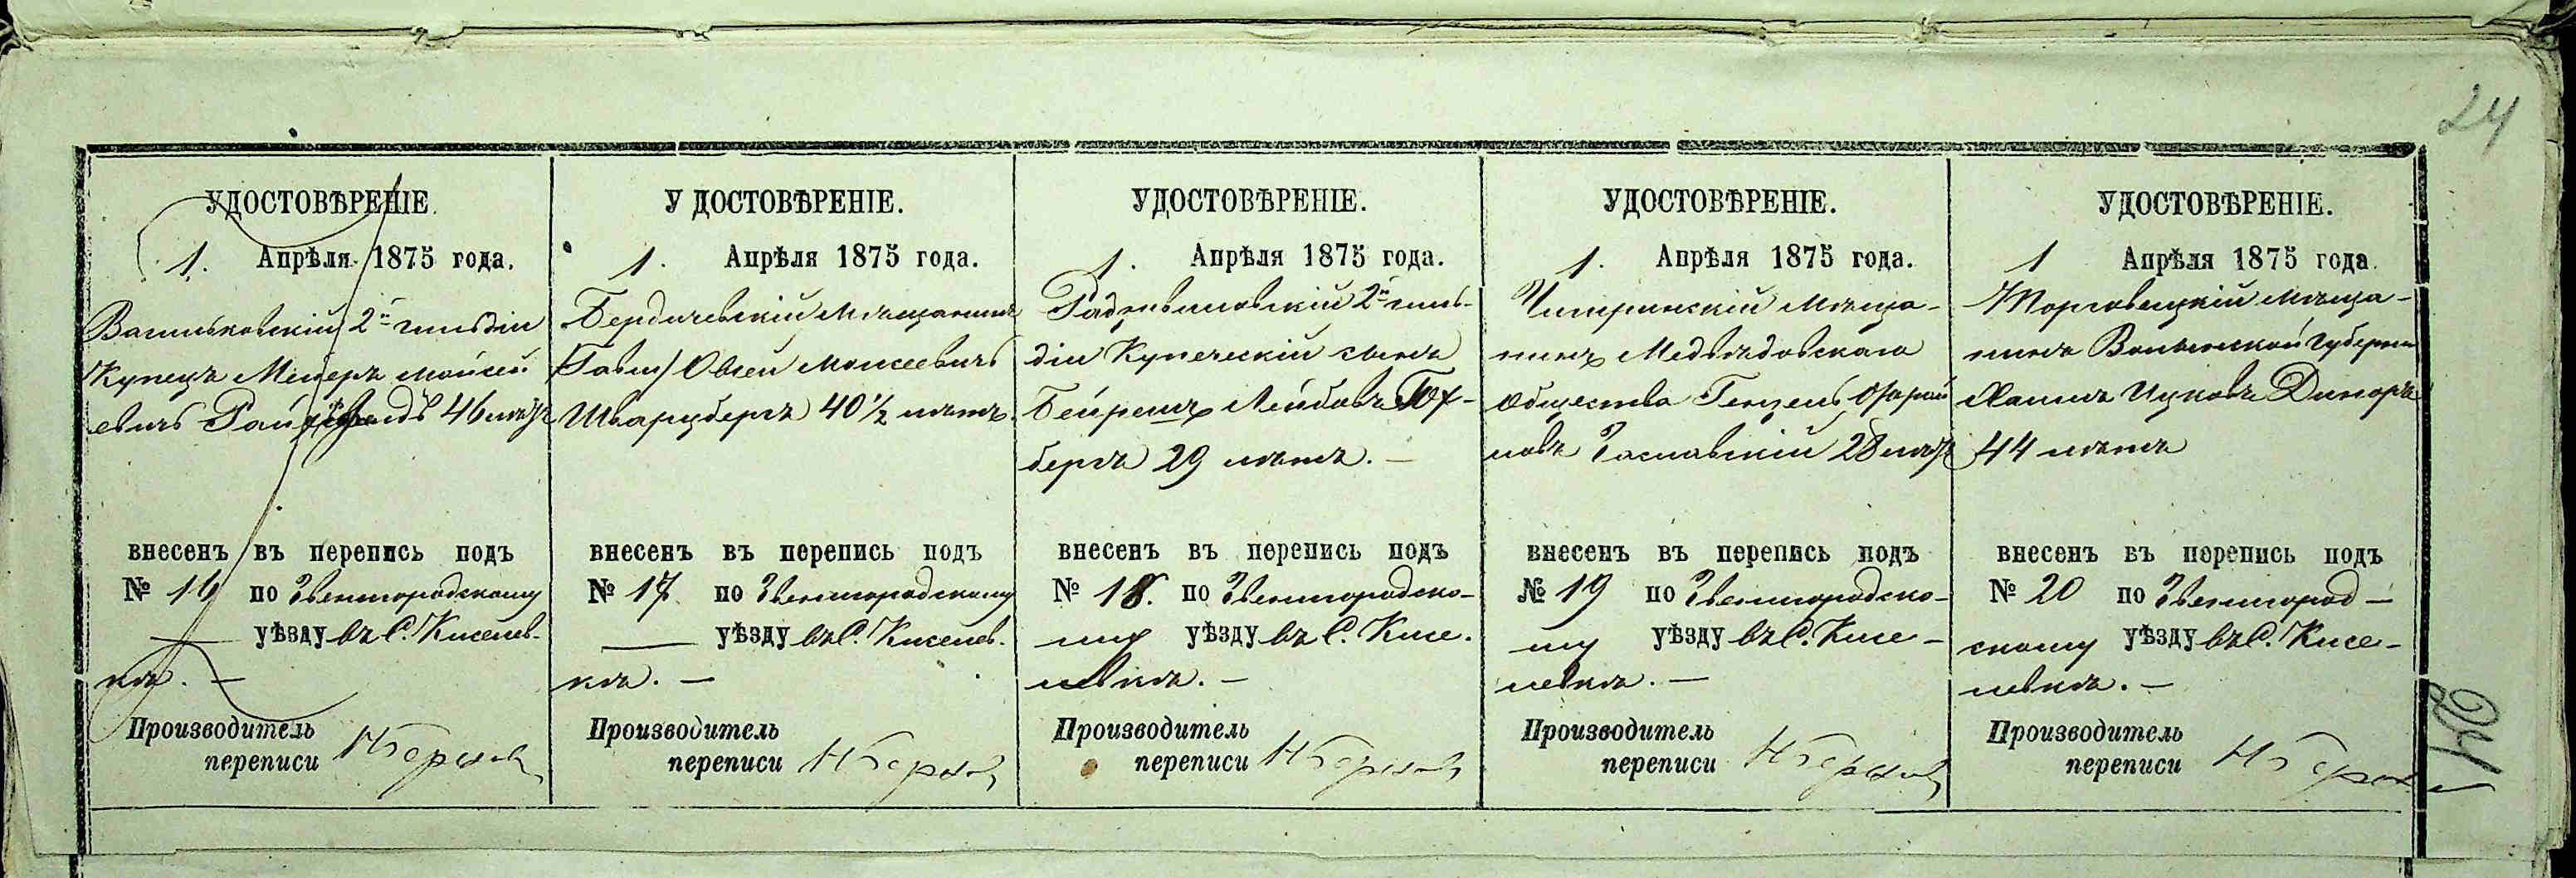 24
УДОСТОВѢРЕНІЕ.
1. Апрѣля 1875 года.
Васильковскій 2й гильдіи
Купецъ Мейеръ Мойсе
евичъ 46 лѣтъ
внесенъ въ перепись подъ
№ 16 по Звенигородскому
уѣзду въ С. Киселев-
кѣ. —
Производитель
переписи
УДОСТОВѢРЕНІЕ.
1. Апрѣля 1875 года.
Бердичевскій Мѣщанинъ
Овсей Моисеевичъ
Шварцбергъ 40 ½ лѣтъ.
внесенъ въ перепись подъ
№ 17 по Звенигородскому
уѣзду въ С. Киселев-
кѣ. —
Производитель
переписи
УДОСТОВѢРЕНІЕ.
1. Апрѣля 1875 года.
Радзивиловскій 2й гиль-
діи Купеческій сынъ
Бейришъ Лейбовъ
бергъ 29 лѣтъ. —
внесенъ въ перепись подъ
№ 18. по Звенигородско-
му уѣзду въ С. Кисе-
левкѣ. —
Производитель
переписи
УДОСТОВѢРЕНІЕ.
1. Апрѣля 1875 года.
Чигиринскій Мѣща-
нинъ Медвѣдовскаго
Общества
новъ 28 лѣтъ
внесенъ въ перепись подъ
№ 19 по Звенигородско-
му уѣзду въ С. Кисе-
левкѣ. —
Производитель
переписи
УДОСТОВѢРЕНІЕ.
1 Апрѣля 1875 года.
Торговицкій Мѣща-
нинъ Волынской Губерніи
Хаимъ Ицковъ
44 лѣтъ
внесенъ въ перепись подъ
№ 20 по Звенигород-
скому уѣзду въ С. Кисе-
левкѣ. —
Производитель
переписи